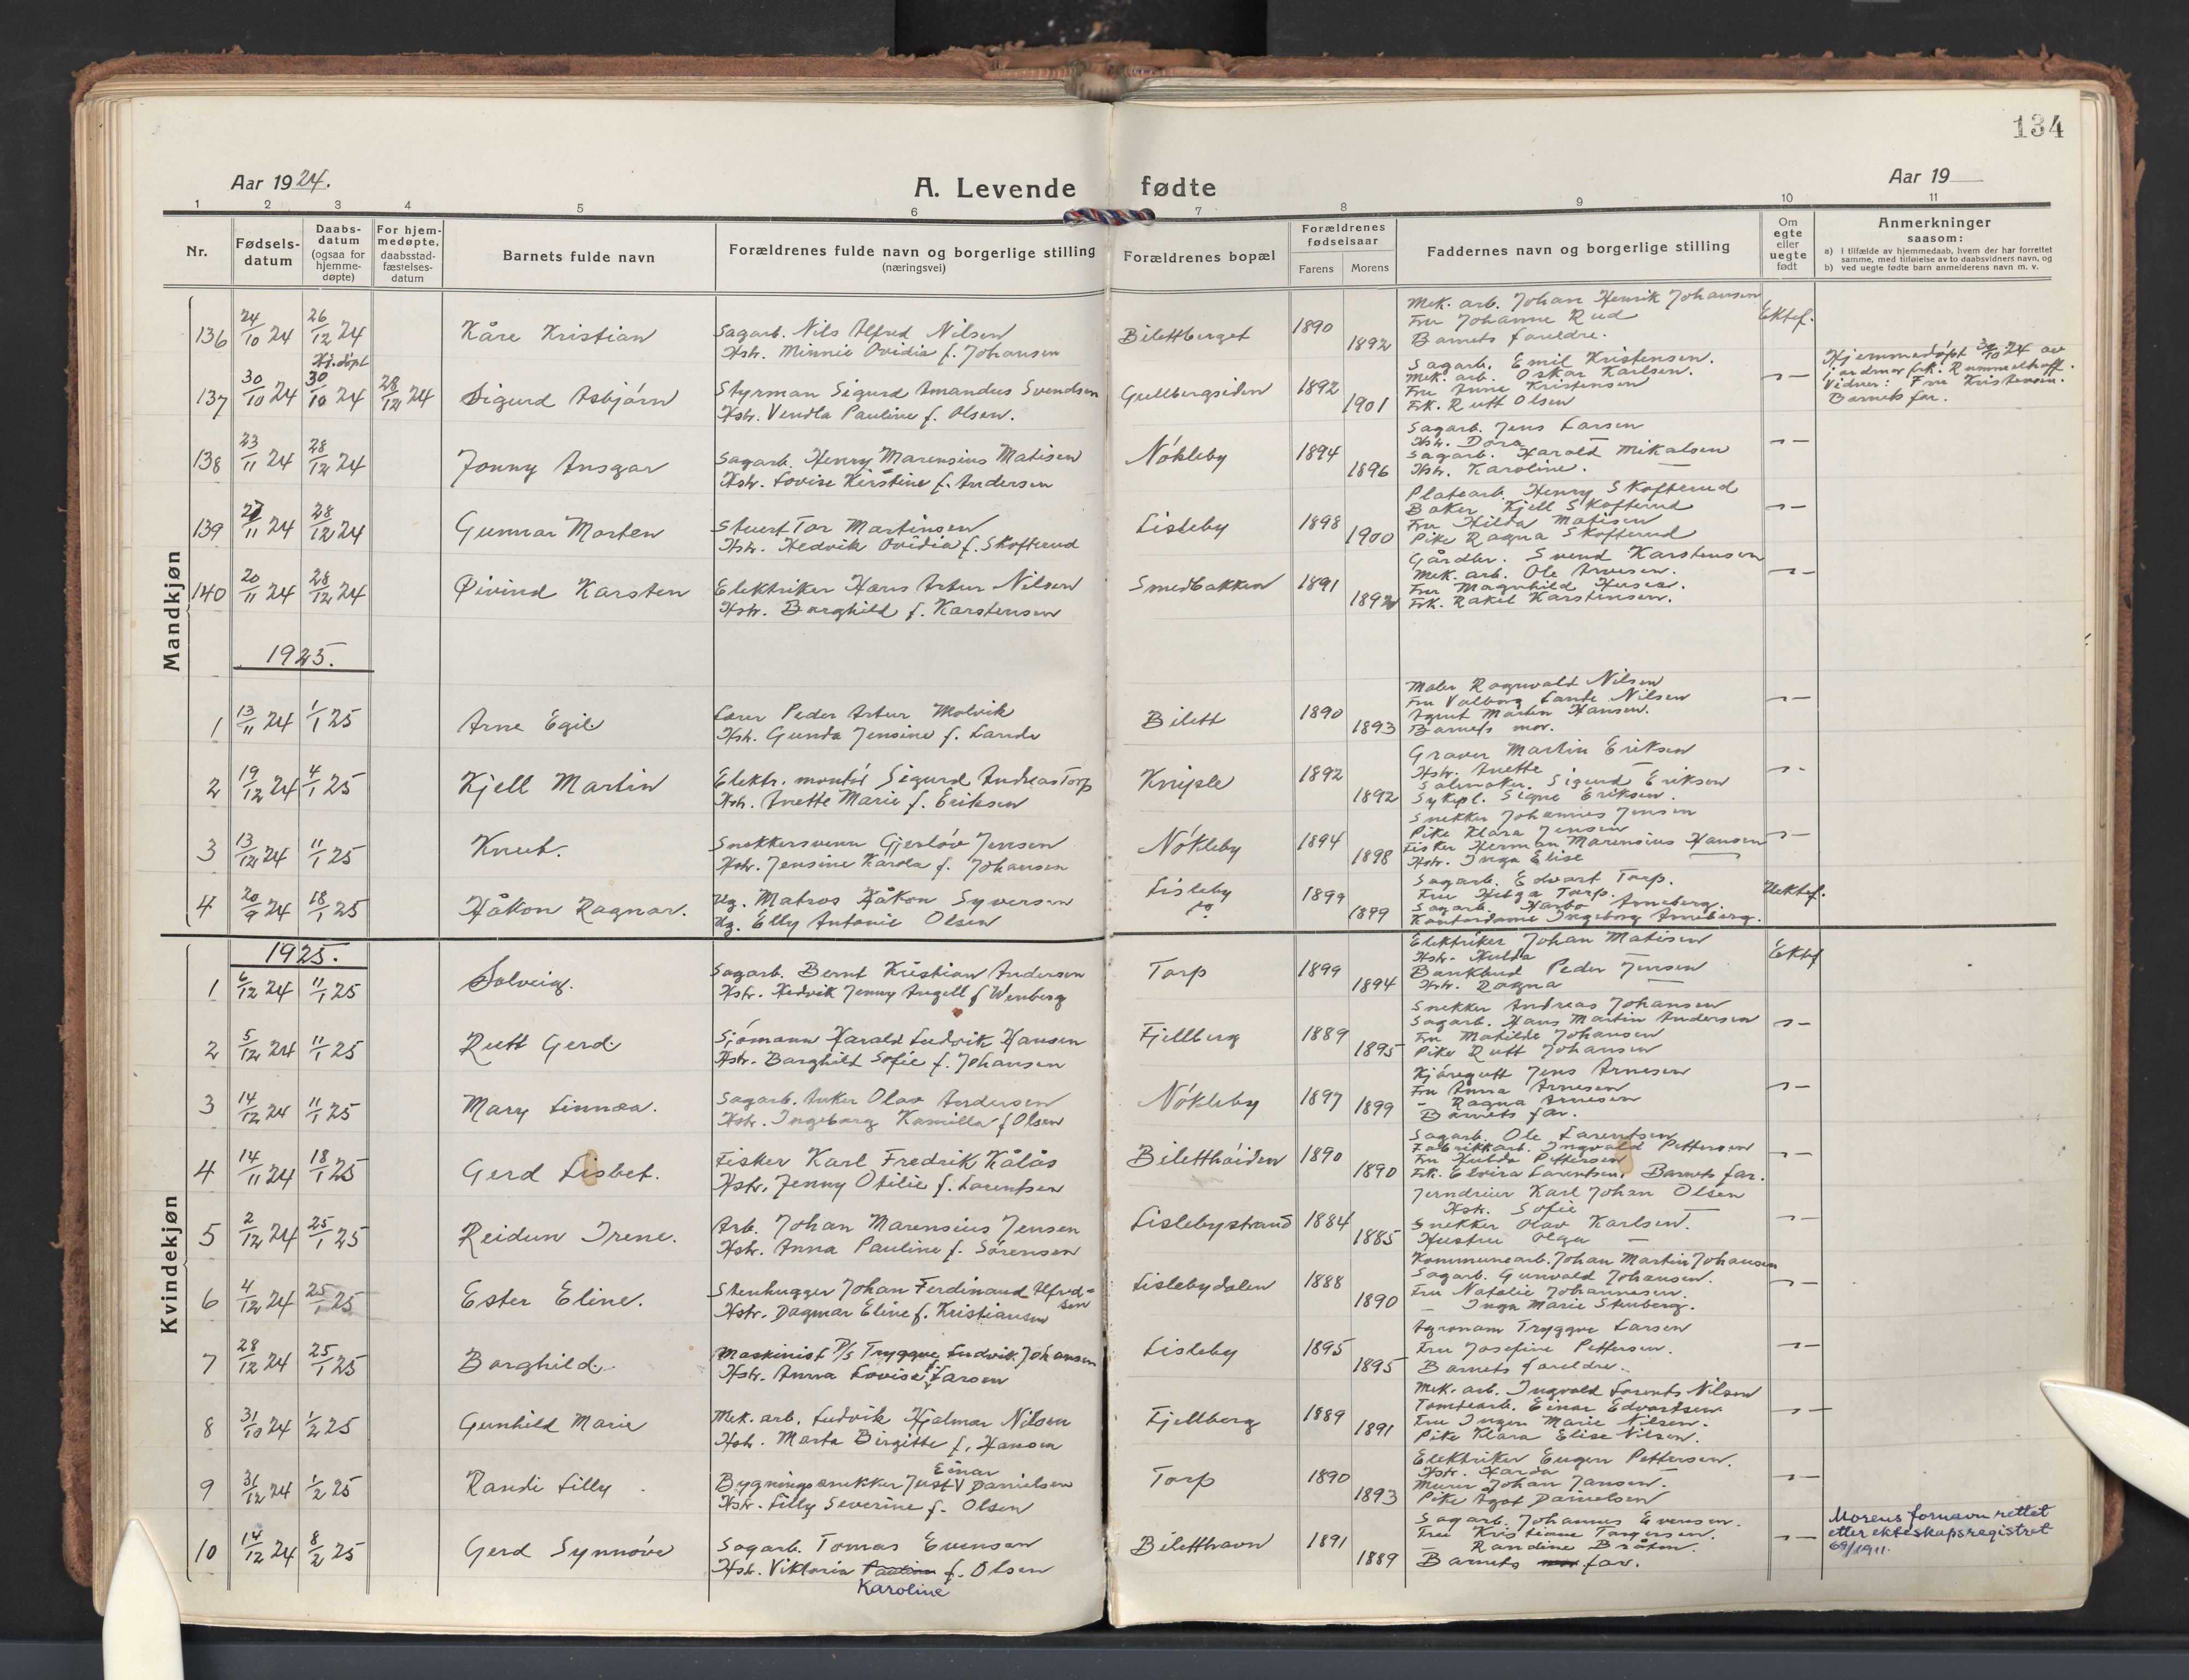 134
Aar 1924.
A. Levende fødte
Aar 19
1 2 3 4 5 6 7 8 9 10 11
Nr.
Fødsels-
datum
Daabs-
datum
(ogsaa for
hjemme-
døpte)
For hjem-
medøpte,
daabsstad-
fæstelses-
datum
Barnets fulde navn
Forældrenes fulde navn og borgerlige stilling
(næringsvei)
Forældrenes bopæl
Forældrenes
fødselsaar
Farens Morens
Faddernes navn og borgerlige stilling
Om
egte
eller
uegte
født
Anmerkninger
saasom:
a) i tilfælde av hjemmedaab, hvem der har forrettet
samme, med tilføielse av to daabsvidners navn, og
b) ved uegte fødte barn anmelderens navn m. v.
Mandkjøn
136 24/10 24 26/12 24 Kåre Kristian
Sagarb. Nils Alfred Nilsen
Hstr. Minnie Ovidia f. Johansen
Bilettberget 1890 1892
Mek. arb. Johan Henrik Johansen
Fru Johanne Rud
Barnets foreldre.
Ektef.
137 30/10 24 Hj.døpt 30/10 24 28/12 24 Sigurd Asbjørn
Styrman Sigurd Amandus Svendsen
Hstr. Vendla Pauline f. Olsen.
Gullbergsiden 1892 1901
Sagarb. Emil Kristensen.
Mek. arb. Oskar Karlsen.
Fru Anne Kristensen
Frk. Rutt Olsen
Hjemmedøpt 30/10 24 av
jordmor frk. Rummelhoff.
Vidner: Fru Kristensen.
Barnets far.
138 23/11 24 28/12 24 Jonny Ansgar
Sagarb. Henry Marensius Matisen
Hstr. Lovise Kirstine f. Andersen
Nøkleby 1894 1896
Sagarb. Jens Larsen
Hstr. Dora —
Sagarb. Harald Mikalsen
Hstr. Karoline. —
139 27/11 24 28/12 24 Gunnar Morten
Stuert Tor Martinsen
Hstr. Hedvik Ovidia f. Skofterud
Lisleby 1898 1900
Platearb. Henry Skofterud
Baker Kjell Skofterud
Fru Hilda Matisen
Pike Ragna Skofterud
140 20/11 24 28/12 24 Øivind Karsten
Elektriker Hans Artur Nilsen
Hstr. Borghild f. Karstensen
Smedbakken 1891 1892
Gårdbr. Svend Karstensen
Mek. arb. Ole Arnesen.
Fru Magnhild
Frk. Rakel Karstensen.
1925.
1 13/11 24 1/1 25 Arne Egil
Lærer Peder Artur Molvik
Hstr. Gunda Jensine f. Lande
Bilett 1890 1893
Maler Ragnvald Nilsen
Fru Valborg Lande Nilsen
Agent Martin Hansen.
Barnets mor.
2 19/12 24 4/1 25 Kjell Martin
Elektr. montør Sigurd Andreas Torp
Hstr. Anette Marie f. Eriksen
Kniple 1892 1892
Graver Martin Eriksen
Hstr. Anette —
Salmaker. Sigurd Eriksen
Sykepl. Signe Eriksen.
3 13/12 24 11/1 25 Knut.
Snekkersvenn Gjerløv Jensen
Hstr. Jensine Karola f. Johansen
Nøkleby 1894 1898
Snekker Johannes Jensen
Pike Klara Jensen
Fisker Herman Marensius Hansen
Hstr. Inga Elise —
4 20/9 24 18/1 25 Håkon Ragnar.
Ug. Matros Håkon Syversen
Ug. Elly Antonie Olsen
Lisleby 1899 1899
Sagarb. Edvart Torp.
Fru Helga Torp.
Sagarb. Harbo Anneberg.
Kontordame Ingeborg Anneberg.
Uektef.
Kvindekjøn
1925.
1 6/12 24 11/1 25 Solveig.
Sagarb. Bernt Kristian Andersen
Hstr. Hedvik Jenny Angell f Wenberg
Torp 1899 1894
Elektriker Johan Matisen
Hstr. Hulda —
Bankbud Peder Jensen
Hstr. Ragna —
Ektef
2 5/12 24 11/1 25 Rutt Gerd
Sjømann Harald Ludvik Hansen
Hstr. Borghild Sofie f. Johansen
Fjellberg 1889 1895
Snekker Andreas Johansen
Sagarb. Hans Martin Andersen
Fru Matilde Johansen
Pike Rutt Johansen
3 14/12 24 11/1 25 Mary Linnea.
Sagarb. Anker Olav Andersen
Hstr. Ingeborg Kamilla f Olsen
Nøkleby 1897 1899
Kjøregutt Jens Arnesen
Fru Anna Arnesen
- Ragna Arnesen
Barnets far.
4 14/11 24 18/1 25 Gerd Lisbet.
Fisker Karl Fredrik Kålås
Hstr. Jenny Otilie f. Larentsen
Biletthøiden 1890 1890
Sagarb. Ole Larentsen
Fabrikkarb. Ingvald Pettersen
Fru Hulda Pettersen
Frk. Elvira Larentsen. Barnets far.
5 2/12 24 25/1 25 Reidun Irene.
Arb. Johan Marensius Jensen
Hstr. Anna Pauline f. Sørensen
Lislebystrand 1884 1885
Jerndreier Karl Johan Olsen
Hstr. Sofie —
Snekker Olav Karlsen.
Hustru Olga —
6 4/12 24 25/1 25 Ester Eline.
Stenhugger Johan Ferdinand Ulfred=
sen
Hstr. Dagmar Eline f. Kristiansen
Lislebydalen 1888 1890
Kommunearb. Johan Martin Johansen
Sagarb. Gunvald Johansen.
Fru Natalie Johannesen.
— Inga Marie Stenberg.
7 28/12 24 25/1 25 Borghild.
Maskinist D/S Trygve Ludvik Johansen
Hstr. Anna Lovise f. Larsen
Lisleby 1895 1895
Agronom Tryggve Larsen
Fru Josefine Pettersen.
Barnets foreldre.
8 31/10 24 1/2 25 Gunhild Marie
Mek. arb. Ludvik Hjalmar Nilsen
Hstr. Marta Birgitte f. Hansen
Fjellberg 1889 1891
Mek. arb. Ingvald Lorents Nilsen
Tomtearb. Einar Edvartsen.
Fru Inger Marie Nilsen.
Pike Klara Elise Nilsen.
9 31/12 24 1/2 25 Randi Lilly
Einar
Bygningssnekker Just V Danielsen
Hstr. Lilly Severine f. Olsen
Torp 1890 1893
Elektriker Eugen Pettersen.
Hstr. Harda —
Murer Johan Jansen.
Pike Ågot Danielsen
10 14/12 24 8/2 25 Gerd Synnøve
Sagarb. Tomas Evensen
Hstr. Viktoria Pauline f. Olsen
Karoline
Biletthavn 1891 1889
Sagarb. Johannes Evensen.
Fru Kristianne Torgersen.
— Randine Bråten.
Barnets mor far.
Morens fornavn rettet
etter ekteskapsregistret
69/1911.